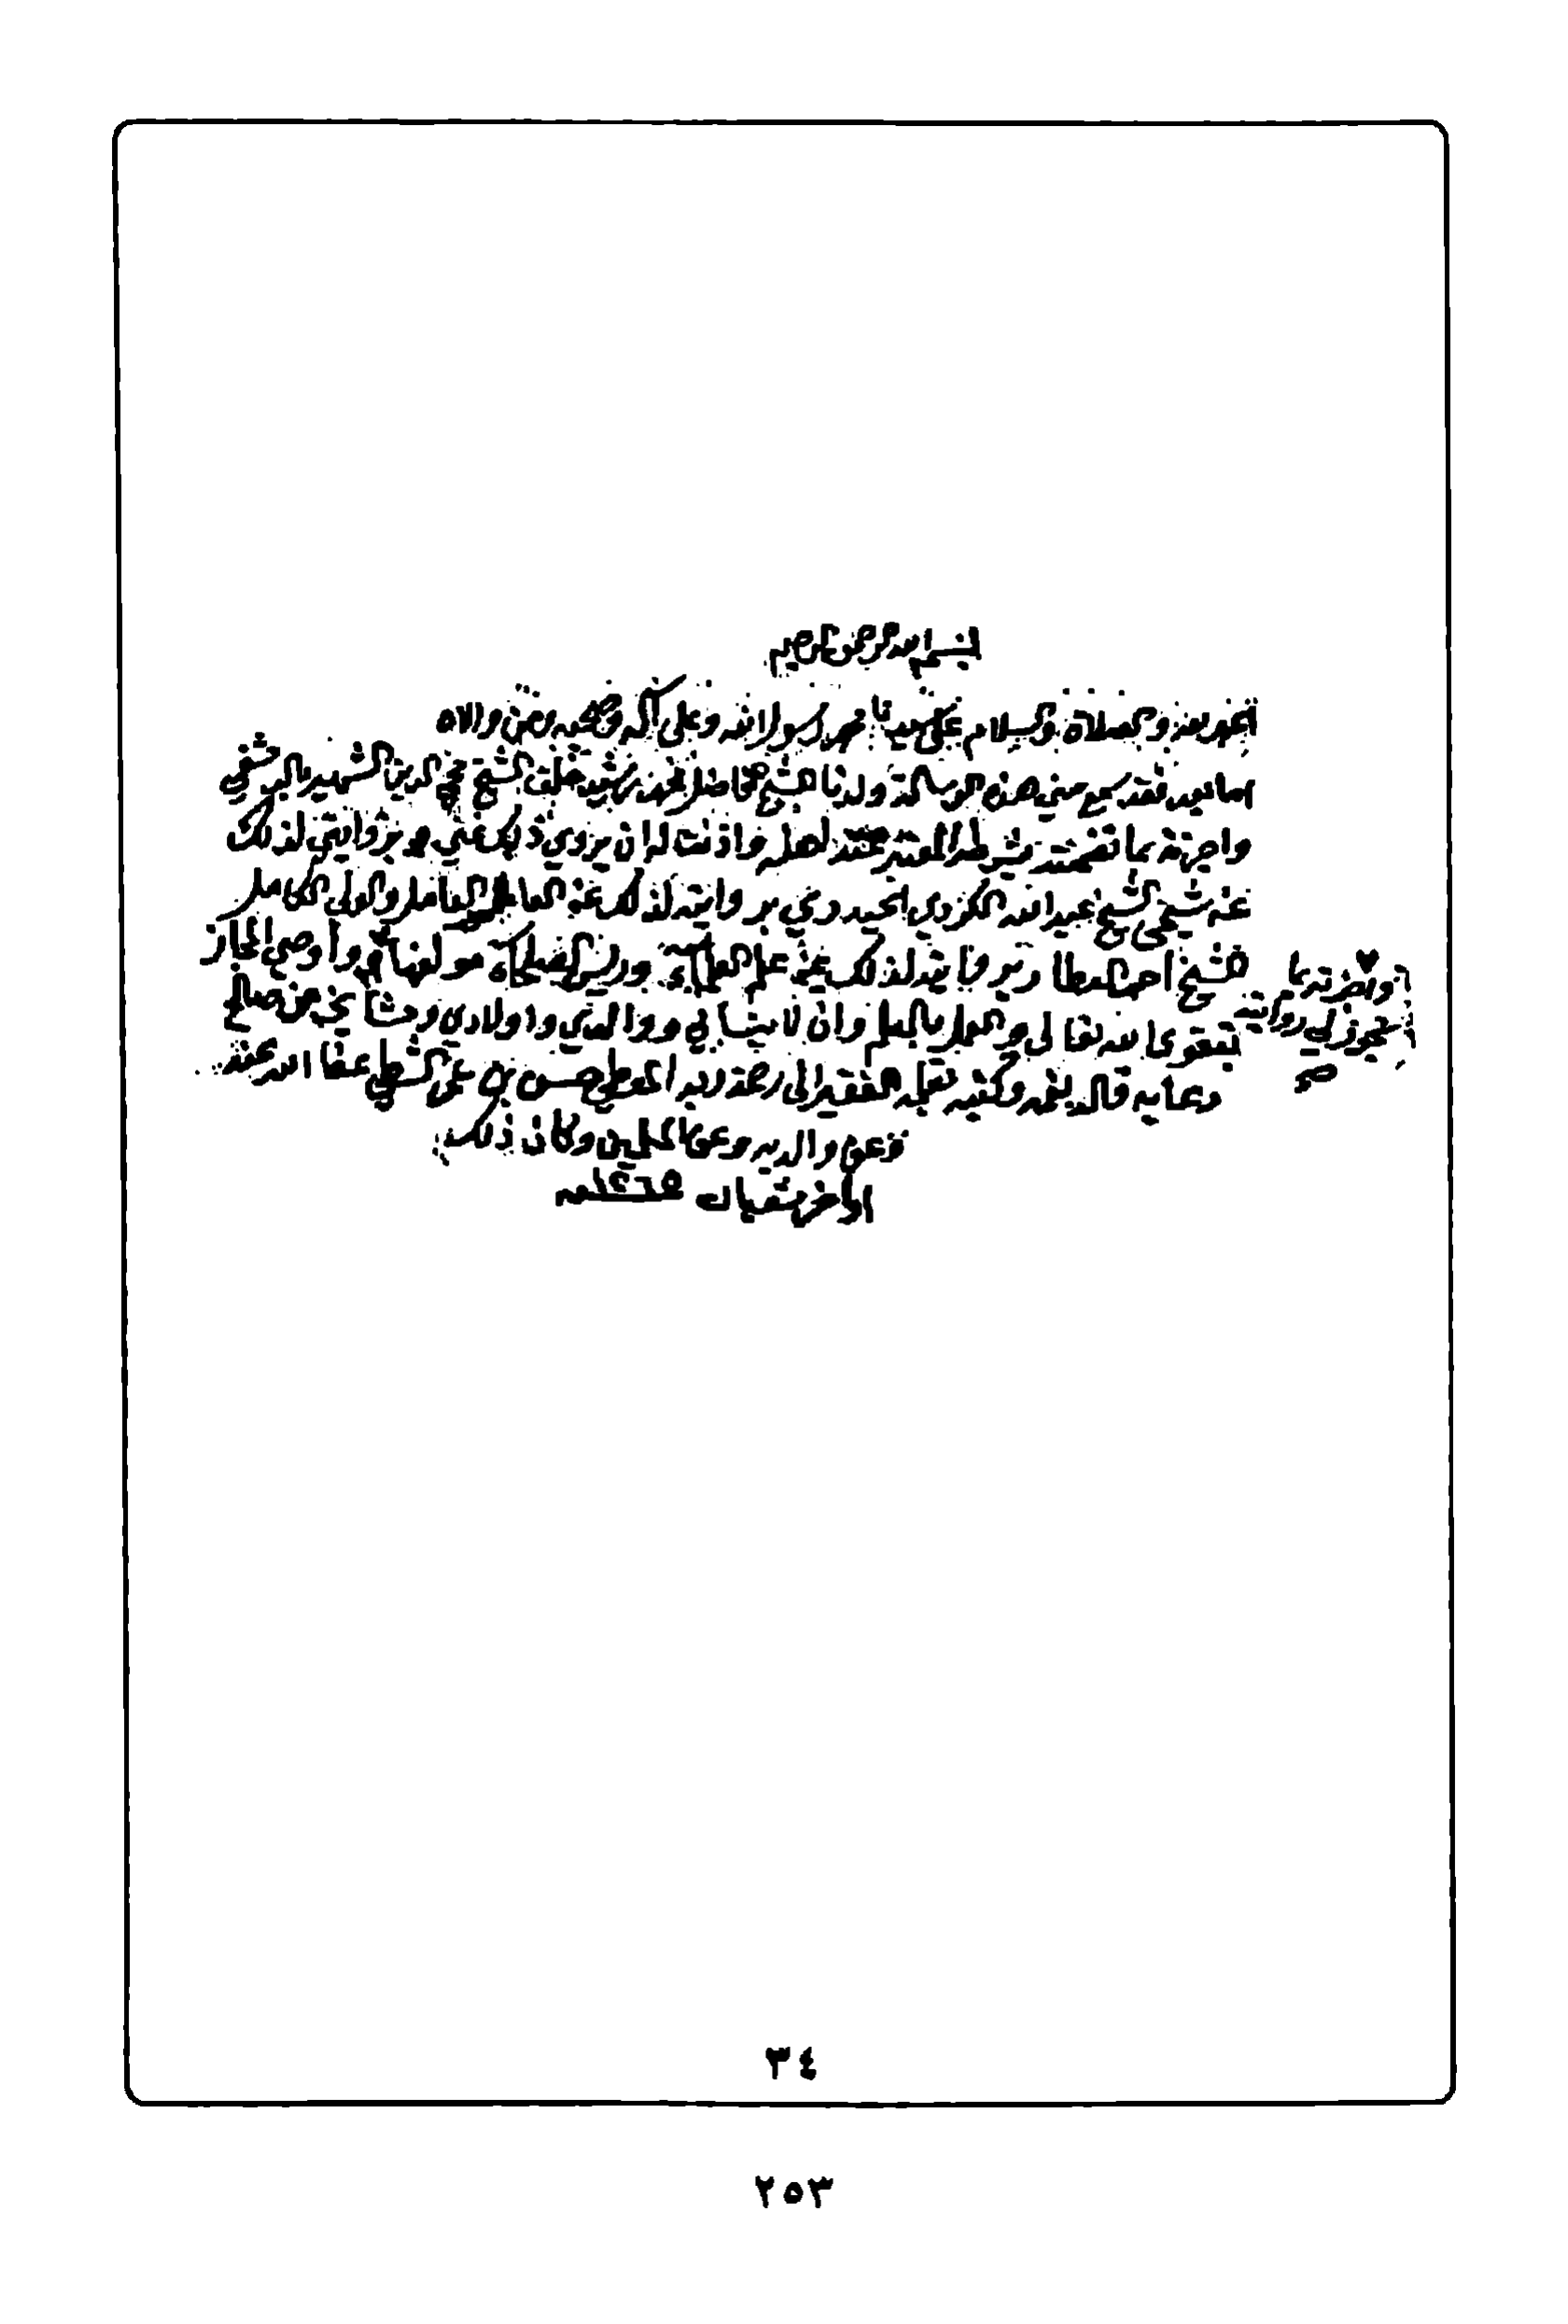 بسم الله الرحمن الرحيم
الحمد لله والصلاة والسلام على سيدنا محمد رسول الله وعلى آله وصحبه ومن والاه
اما بعد فقد سمع مني هذه الرسالة ولدنا الشيخ الفاضل محمد رشيد خلف الشيخ محي الدين الشهير الدمشقي
واجزته بما تضمنته بشرطه المعتبر عند اهله واذنت له ان يروي ذلك عني بروايتي لذلك
عن شيخي الشيخ عبد الله الكردي الحيدري بروايته لذلك عن العالم العامل والولي الكامل
الشيخ احمد العطار بروايته لذلك عن مؤلفها واوصي المجاز
بتقوى الله تعالى والعمل بالعلم وان لا ينساني ووالدي واولادي ومشايخي من صالح
دعايه قاله بفمه وكتبه بقلمه الفقير الى رحمة ربه المعطي حسن بن عمر الشطي عفا الله عنه
وعن والديه وعن المسلمين وكان ذلك
اواخر شعبان
واجزته بما
يجوز لي روايته
صح
٣٤
٢٥٣